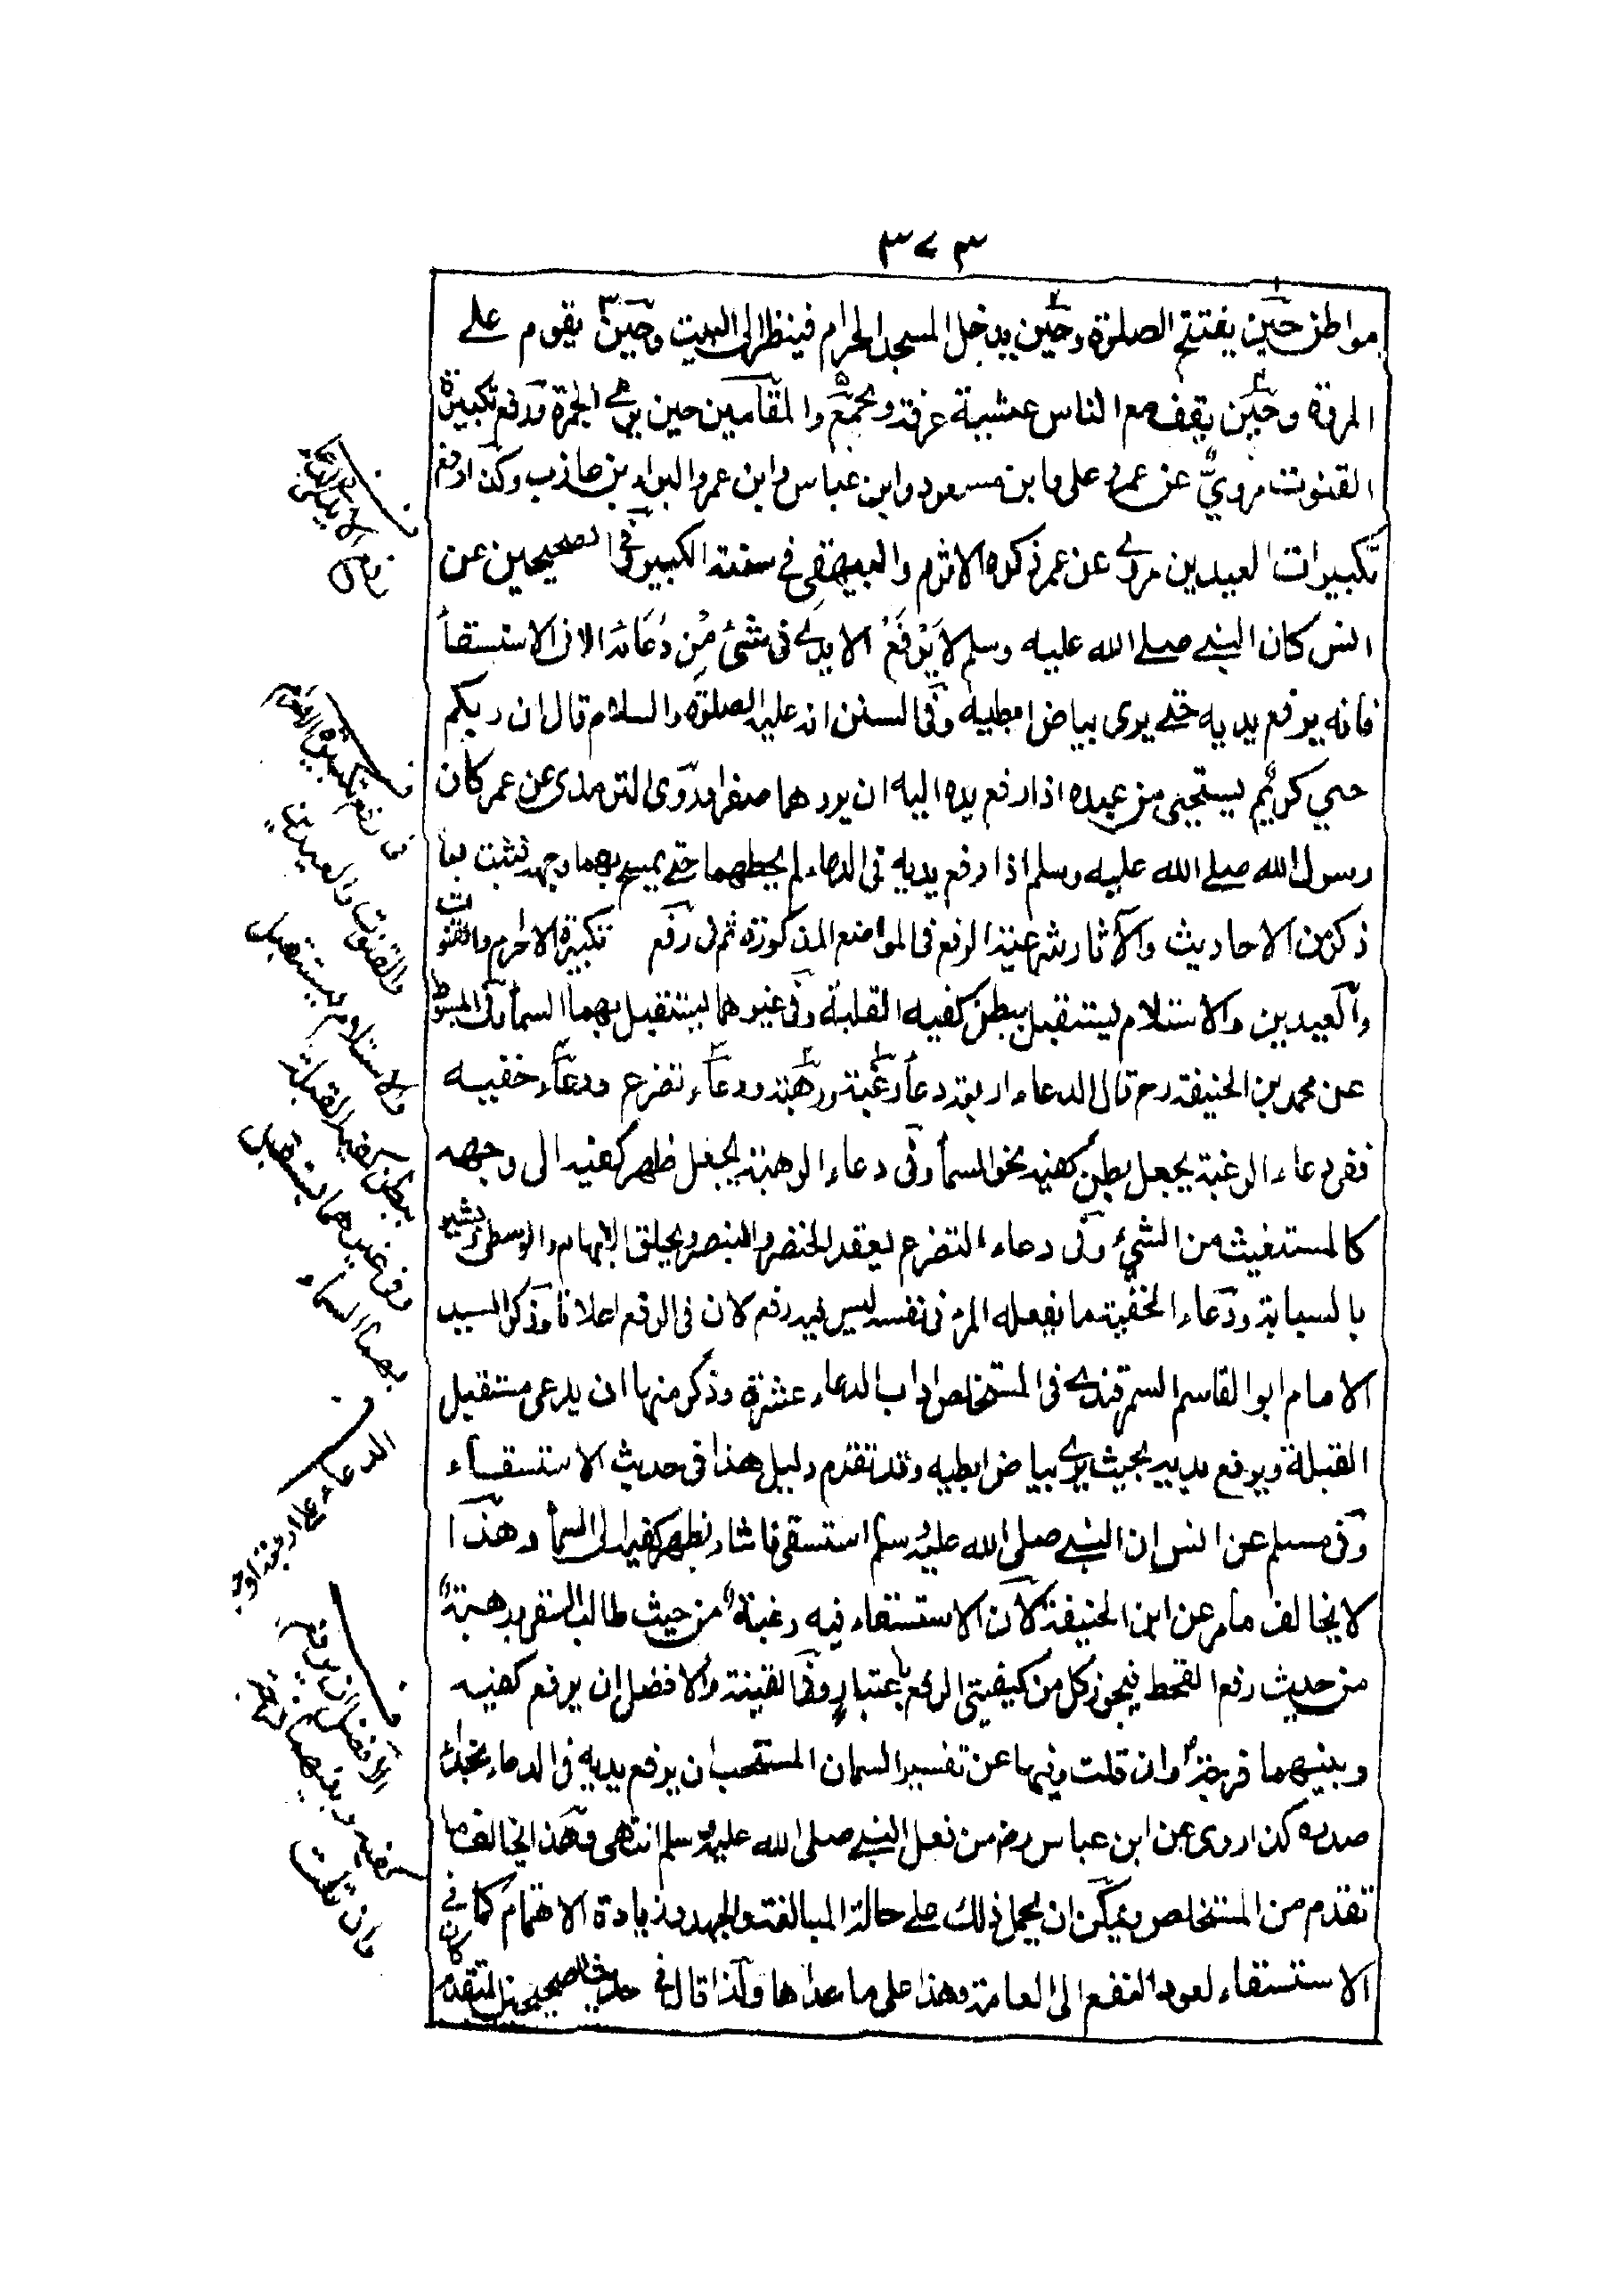 ٣٧٣
مواطن حين يفتتح الصلوة وحين يدخل المسجد الحرام فينظر الى البيت وحين يقوم على
المروة وحين يقف مع الناس عشية عرفة وبجمع والمقامين حين يرمى الجمرة ورفع تكبيرة
القنوت مروي عن عمر وعلى وابن مسعود وابن عباس وابن عمر والبراء بن عازب وكذا رفع
تكبيرات العيدين مروى عن عمر ذكره الاثرم والبيهقى فى سننه الكبير وفى الصحيحين عن
انس كان النبى صلى الله عليه وسلم لا يرفع الايدى فى شئ من دعائه الا فى الاستسقاء
فانه يرفع يديه حتى يرى بياض ابطيه وفى السنن انه عليه الصلوة والسلام قال ان ربكم
حيي كريم يستحيى من عبده اذا رفع يده اليه ان يردهما صفرا وروى الترمذى عن عمر كان
رسول الله صلى الله عليه وسلم اذا رفع يديه فى الدعاء لم يحطهما حتى يمسح بهما وجهه فثبت بما
ذكر من الاحاديث والآثار شرعية الرفع فى المواضع المذكورة ثم فى رفع تكبيرة الاحرام والقنوت
والعيدين والاستلام يستقبل ببطن كفيه القبلة وفى غيرهما يستقبل بهما السماء وفى المبسوط
عن محمد بن الحنيفة رح قال الدعاء اربعة دعاء رغبة ورهبة ودعاء تضرع ودعاء خفيه
ففى دعاء الرغبة يجعل بطن كفيه نحو السماء وفى دعاء الرهبة يجعل ظهر كفيه الى وجهه
كالمستغيث من الشئ وفى دعاء التضرع يعقد الخنصر والبنصر ويحلق الابهام والوسطى ويشير
بالسبابة ودعاء الخفية ما يفعله المرء فى نفسه ليس فيه رفع لان فى الرفع اعلانا وذكر السيد
الامام ابو القاسم السمرقندى فى المستخلص اداب الدعاء عشرة وذكر منها ان يدعى مستقبل
القبلة ويرفع يديه بحيث يرى بياض ابطيه وقد تقدم دليل هذا فى حديث الاستسقاء
وفى مسلم عن انس ان النبى صلى الله عليه وسلم استسقى فاشار بظهر كفيه الى السماء وهذا
لا يخالف ما مر عن ابن الحنيفة لان الاستسقاء فيه رغبة من حيث طالب السقى ورهبة
من حديث رفع القحط فيجوز كل من كيفيتى الرفع باعتبار وفى القينة والافضل ان يرفع كفيه
وبينهما فرجة وان قلت وفيها عن تفسير السمان المستحب ان يرفع يديه فى الدعاء بحذاء
صدره كذا روى عن ابن عباس رض من فعل النبى صلى الله عليه وسلم انتهى وهذا يخالف ما
تقدم من المستخلص ويمكن ان يحمل ذلك على حالة المبالغة والجهد وزيادة الاهتمام كما فى
الاستسقاء لعود النفع الى العامة وهذا على ما عداها ولذا قال فى حديث الصحيحين المتقدم كان
فى رفع تكبيرة الاحرام
والقنوت والعيدين
والاستلام يستقبل
ببطن كفيه القبلة
وفى غيرهما يستقبل
بهما السماء
الدعاء
الافضل ان يرفع
كفيه وبينهما فرجة
وان قلت